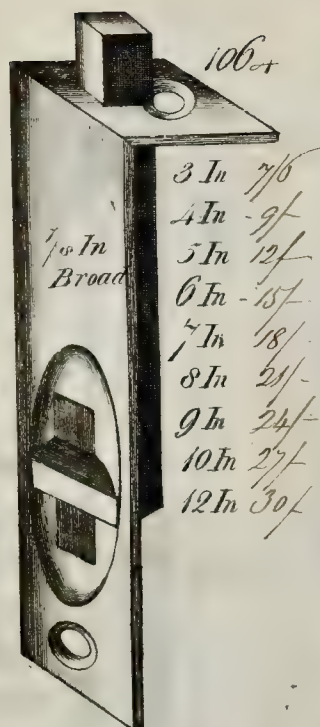 106
7/8 In
Broad
3 In 7/6
4 In - 9/-
5 In 12/-
6 In - 15/-
7 In 18/-
8 In 21/-
9 In 24/-
10 In 27/-
12 In 30/-